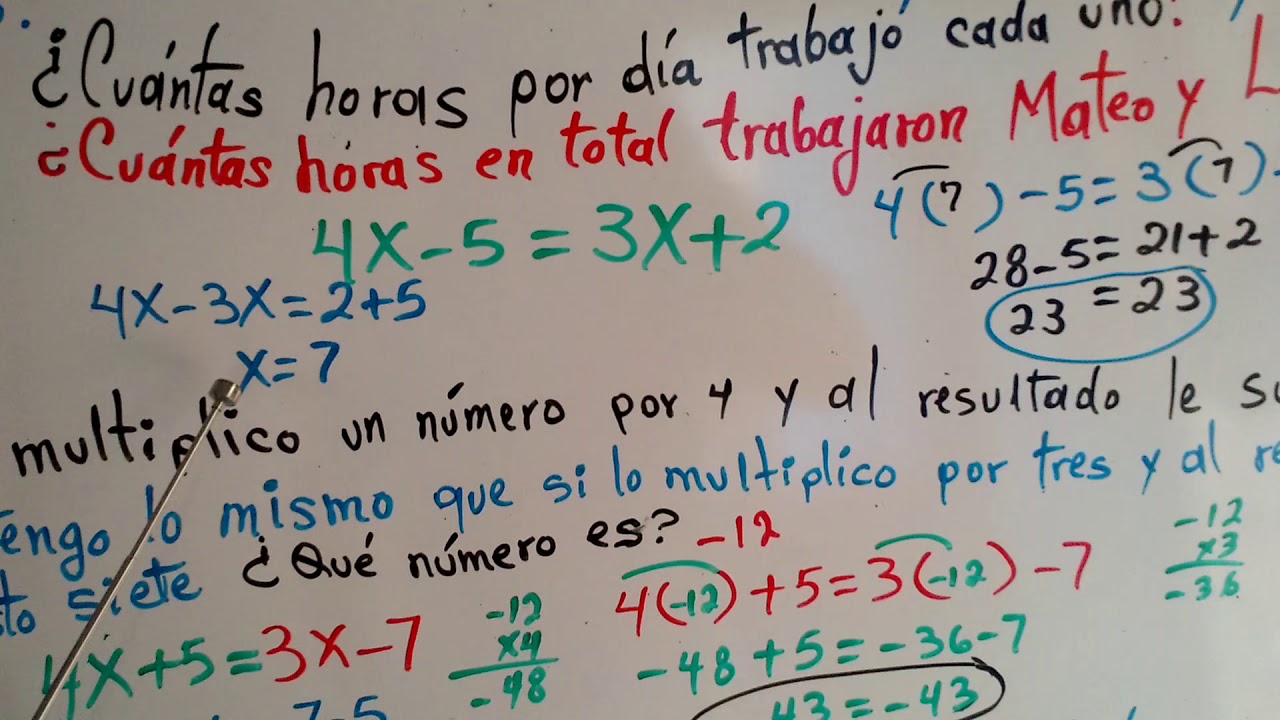 ¿Cuántas horas por día trabajó cada uno?
¿Cuántas horas en total trabajaron Mateo y
4X-5=3X+2
4X-3X=2+5
X=7
4(7)-5=3(7)
28-5=21+2
23=23
multiplico un número por 4 y al resultado le
lo mismo que si lo multiplico por tres y al
siete ¿Qué número es? -12
4X+5=3X-7
-12
X4
-48
4(-12)+5=3(-12)-7
-48+5=-36-7
43=-43
-12
X3
-36
7-5